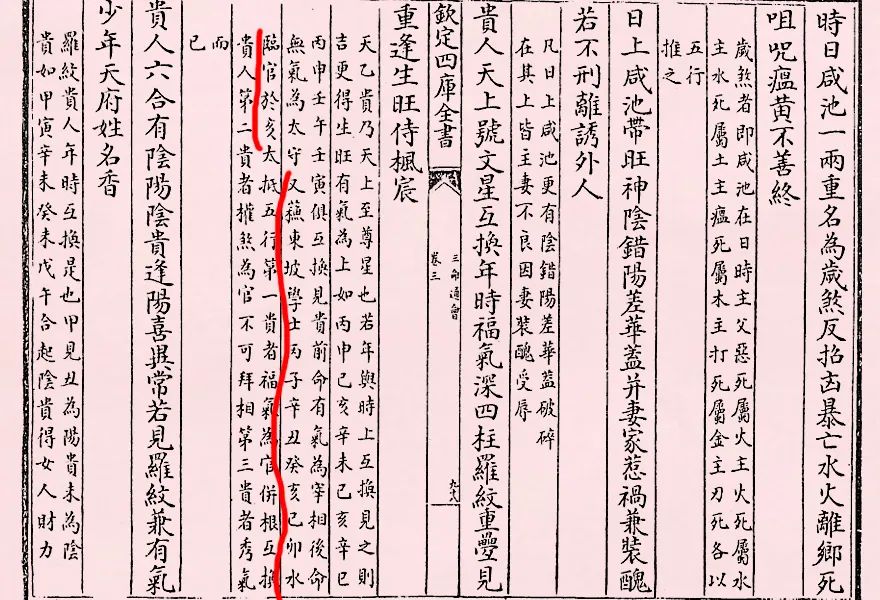 時日咸池一兩重名為歲煞反招凶暴亡水火離鄉死
咀呪瘟黃不善終
歲煞者即咸池在日時主父惡死屬火主火死屬水
主水死屬土主瘟死屬木主打死屬金主刃死各以
五行
推之
日上咸池帶旺神陰錯陽差華蓋并妻家惹禍兼裝醜
若不刑離誘外人
凡日上咸池更有陰錯陽差華蓋破碎
在其上皆主妻不良因妻裝醜受辱
貴人天上號文星互換年時福氣深四柱羅紋重疊見
欽定四庫全書
卷三
三命通會
九八
重逢生旺侍楓宸
天乙貴乃天上至尊星也若年與時上互換見之則
吉更得生旺有氣為上如丙申己亥辛未己亥辛巳
丙申壬午壬寅俱互換見貴前命有氣為宰相後命
無氣為太守又蘓東坡學士丙子辛丑癸亥乙卯水
臨官於亥太抵五行第一貴者福氣為官併根互換
貴人第二貴者權煞為官不可拜相第三貴者秀氣
而
已
貴人六合有陰陽陰貴逢陽喜異常若見羅紋兼有氣
少年天府姓名香
羅紋貴人年時互換是也甲見丑為陽貴未為陰
貴如甲寅辛未癸未戊午合起陰貴得女人財力